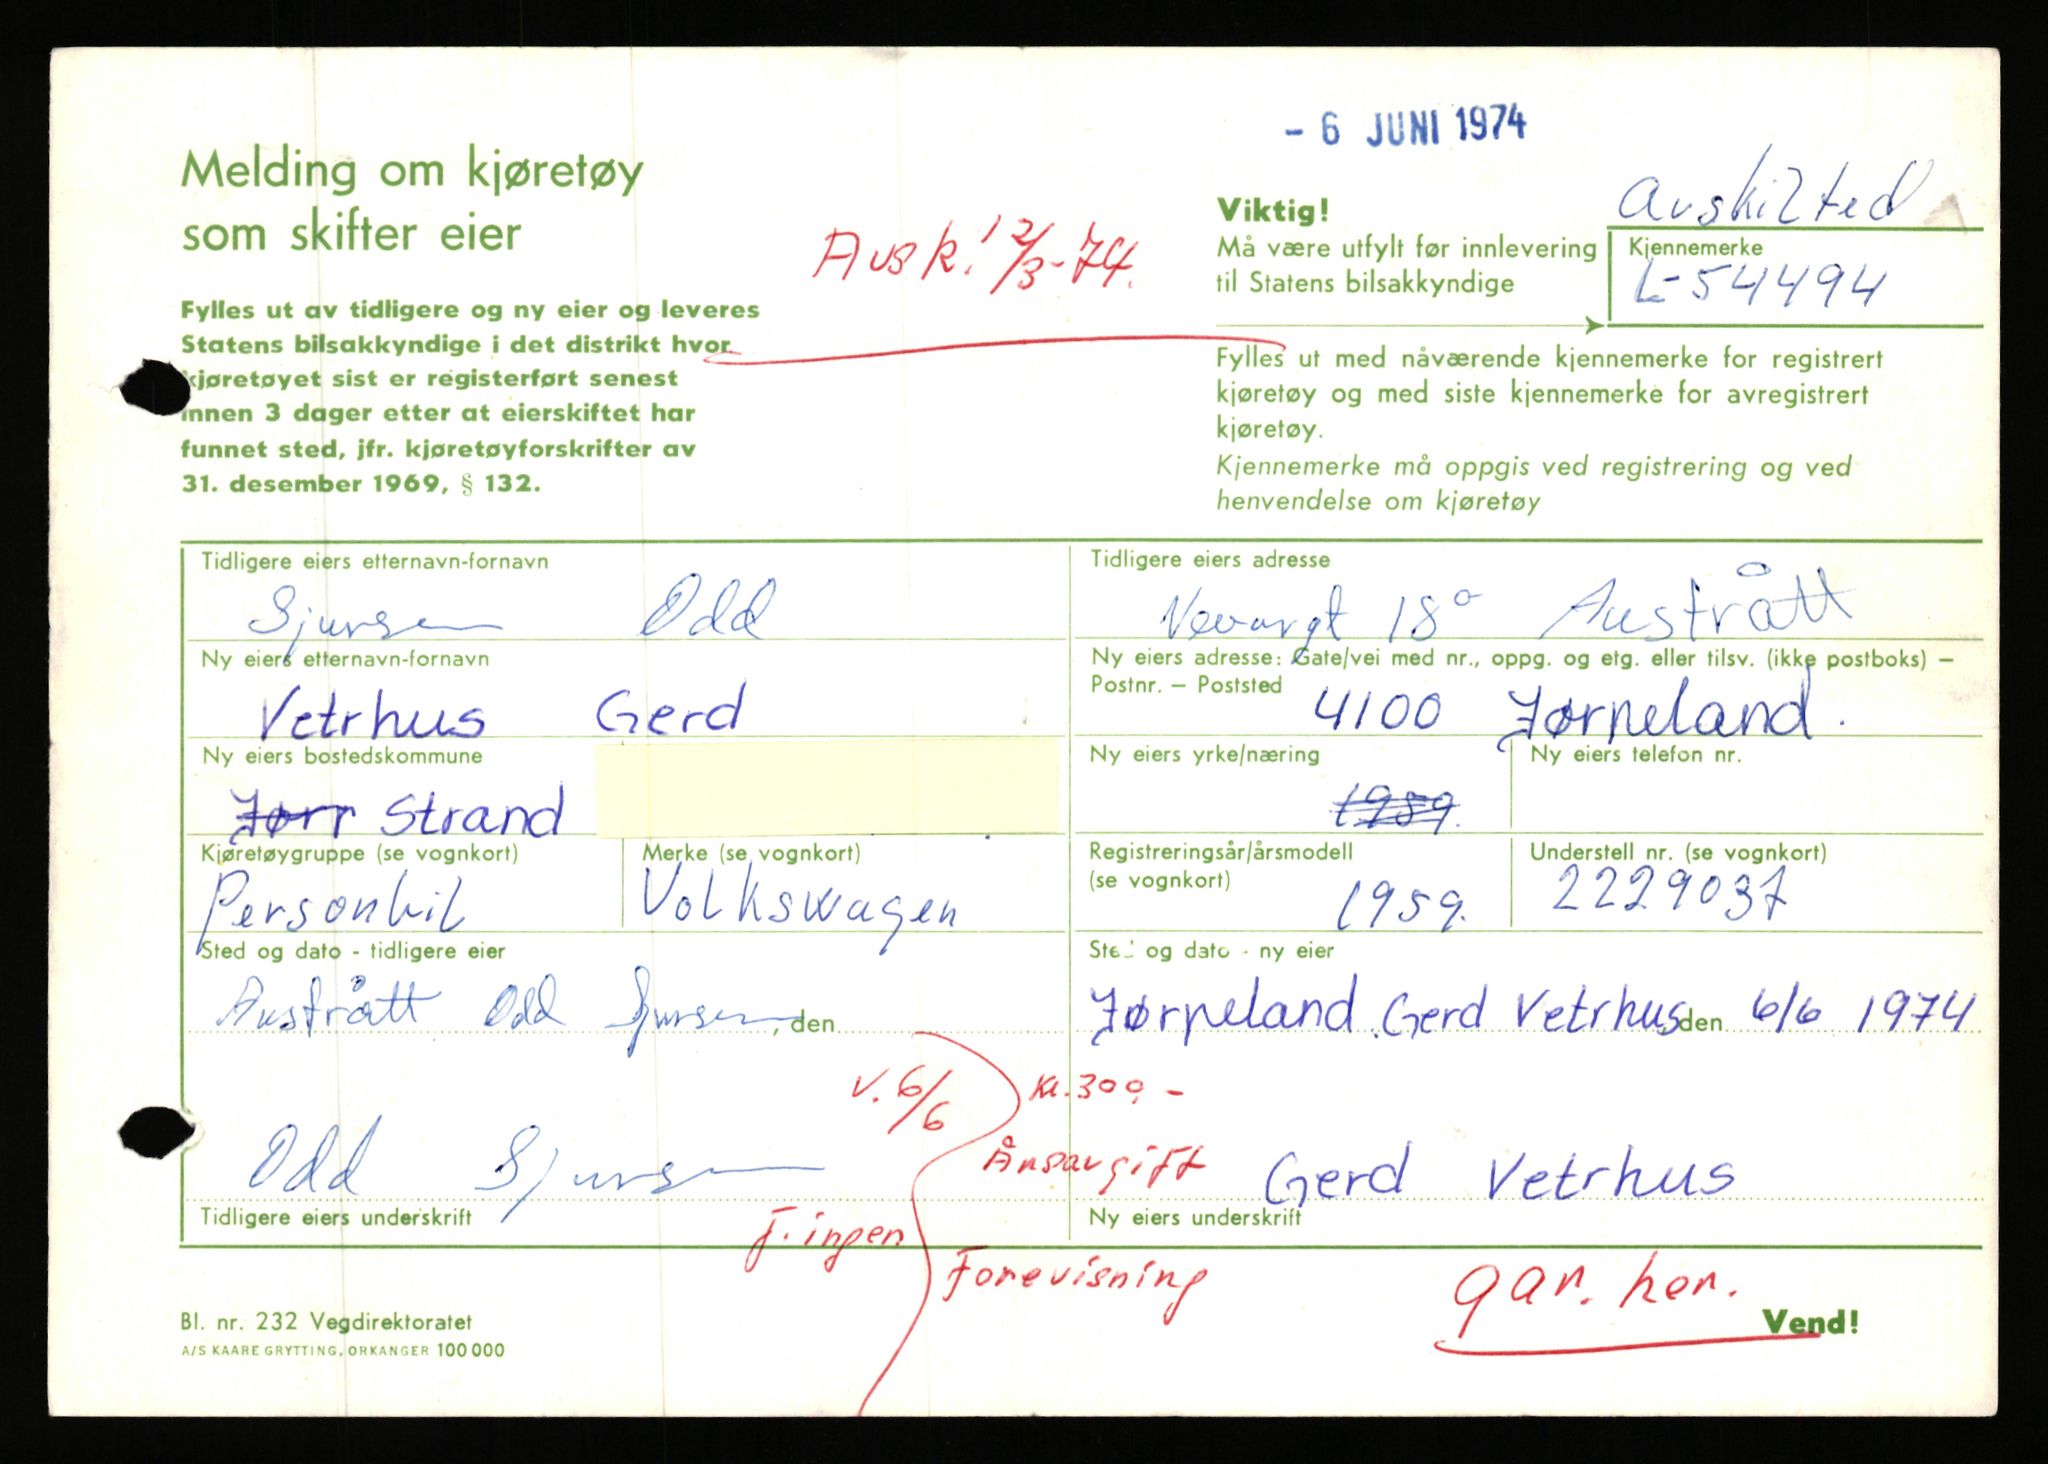 - 6 JUNI 1974
Melding om kjøretøy
som skifter eier
Avsk. 12/3-74.
Viktig!
Må være utfylt før innlevering
til Statens bilsakkyndige
Avskilted
Kjennemerke
L-54494
Fylles ut av tidligere og ny eier og leveres
Statens bilsakkyndige i det distrikt hvor
kjøretøyet sist er registerført senest
innen 3 dager etter at eierskiftet har
funnet sted, jfr. kjøretøyforskrifter av
31. desember 1969, § 132.
Fylles ut med nåværende kjennemerke for registrert
kjøretøy og med siste kjennemerke for avregistrert
kjøretøy.
Kjennemerke må oppgis ved registrering og ved
henvendelse om kjøretøy
Tidligere eiers etternavn-fornavn
Sjursen Odd
Tidligere eiers adresse
18° Austrått
Ny eiers etternavn-fornavn
Vetrhus Gerd
Ny eiers adresse: Gate/vei med nr., oppg. og etg. eller tilsv. (ikke postboks) –
Postnr. – Poststed
4100 Jørpeland.
Ny eiers bostedskommune
Jørr Strand
Ny eiers yrke/næring
1959.
Ny eiers telefon nr.
Kjøretøygruppe (se vognkort)
Personbil
Merke (se vognkort)
Volkswagen
Registreringsår/årsmodell
(se vognkort)
1959.
Understell nr. (se vognkort)
2229037
Sted og dato - tidligere eier
Austrått Odd Sjursen, den
Sted og dato - ny eier
Jørpeland. Gerd Vetrhus, den 6/6 1974
v. 6/6
kr. 300,-
Årsavgift
Odd Sjursen
Tidligere eiers underskrift
Gerd Vetrhus
Ny eiers underskrift
F. ingen
Forevisning
gar. her.
Bl. nr. 232 Vegdirektoratet
A/S KAARE GRYTTING, ORKANGER 100 000
Vend!